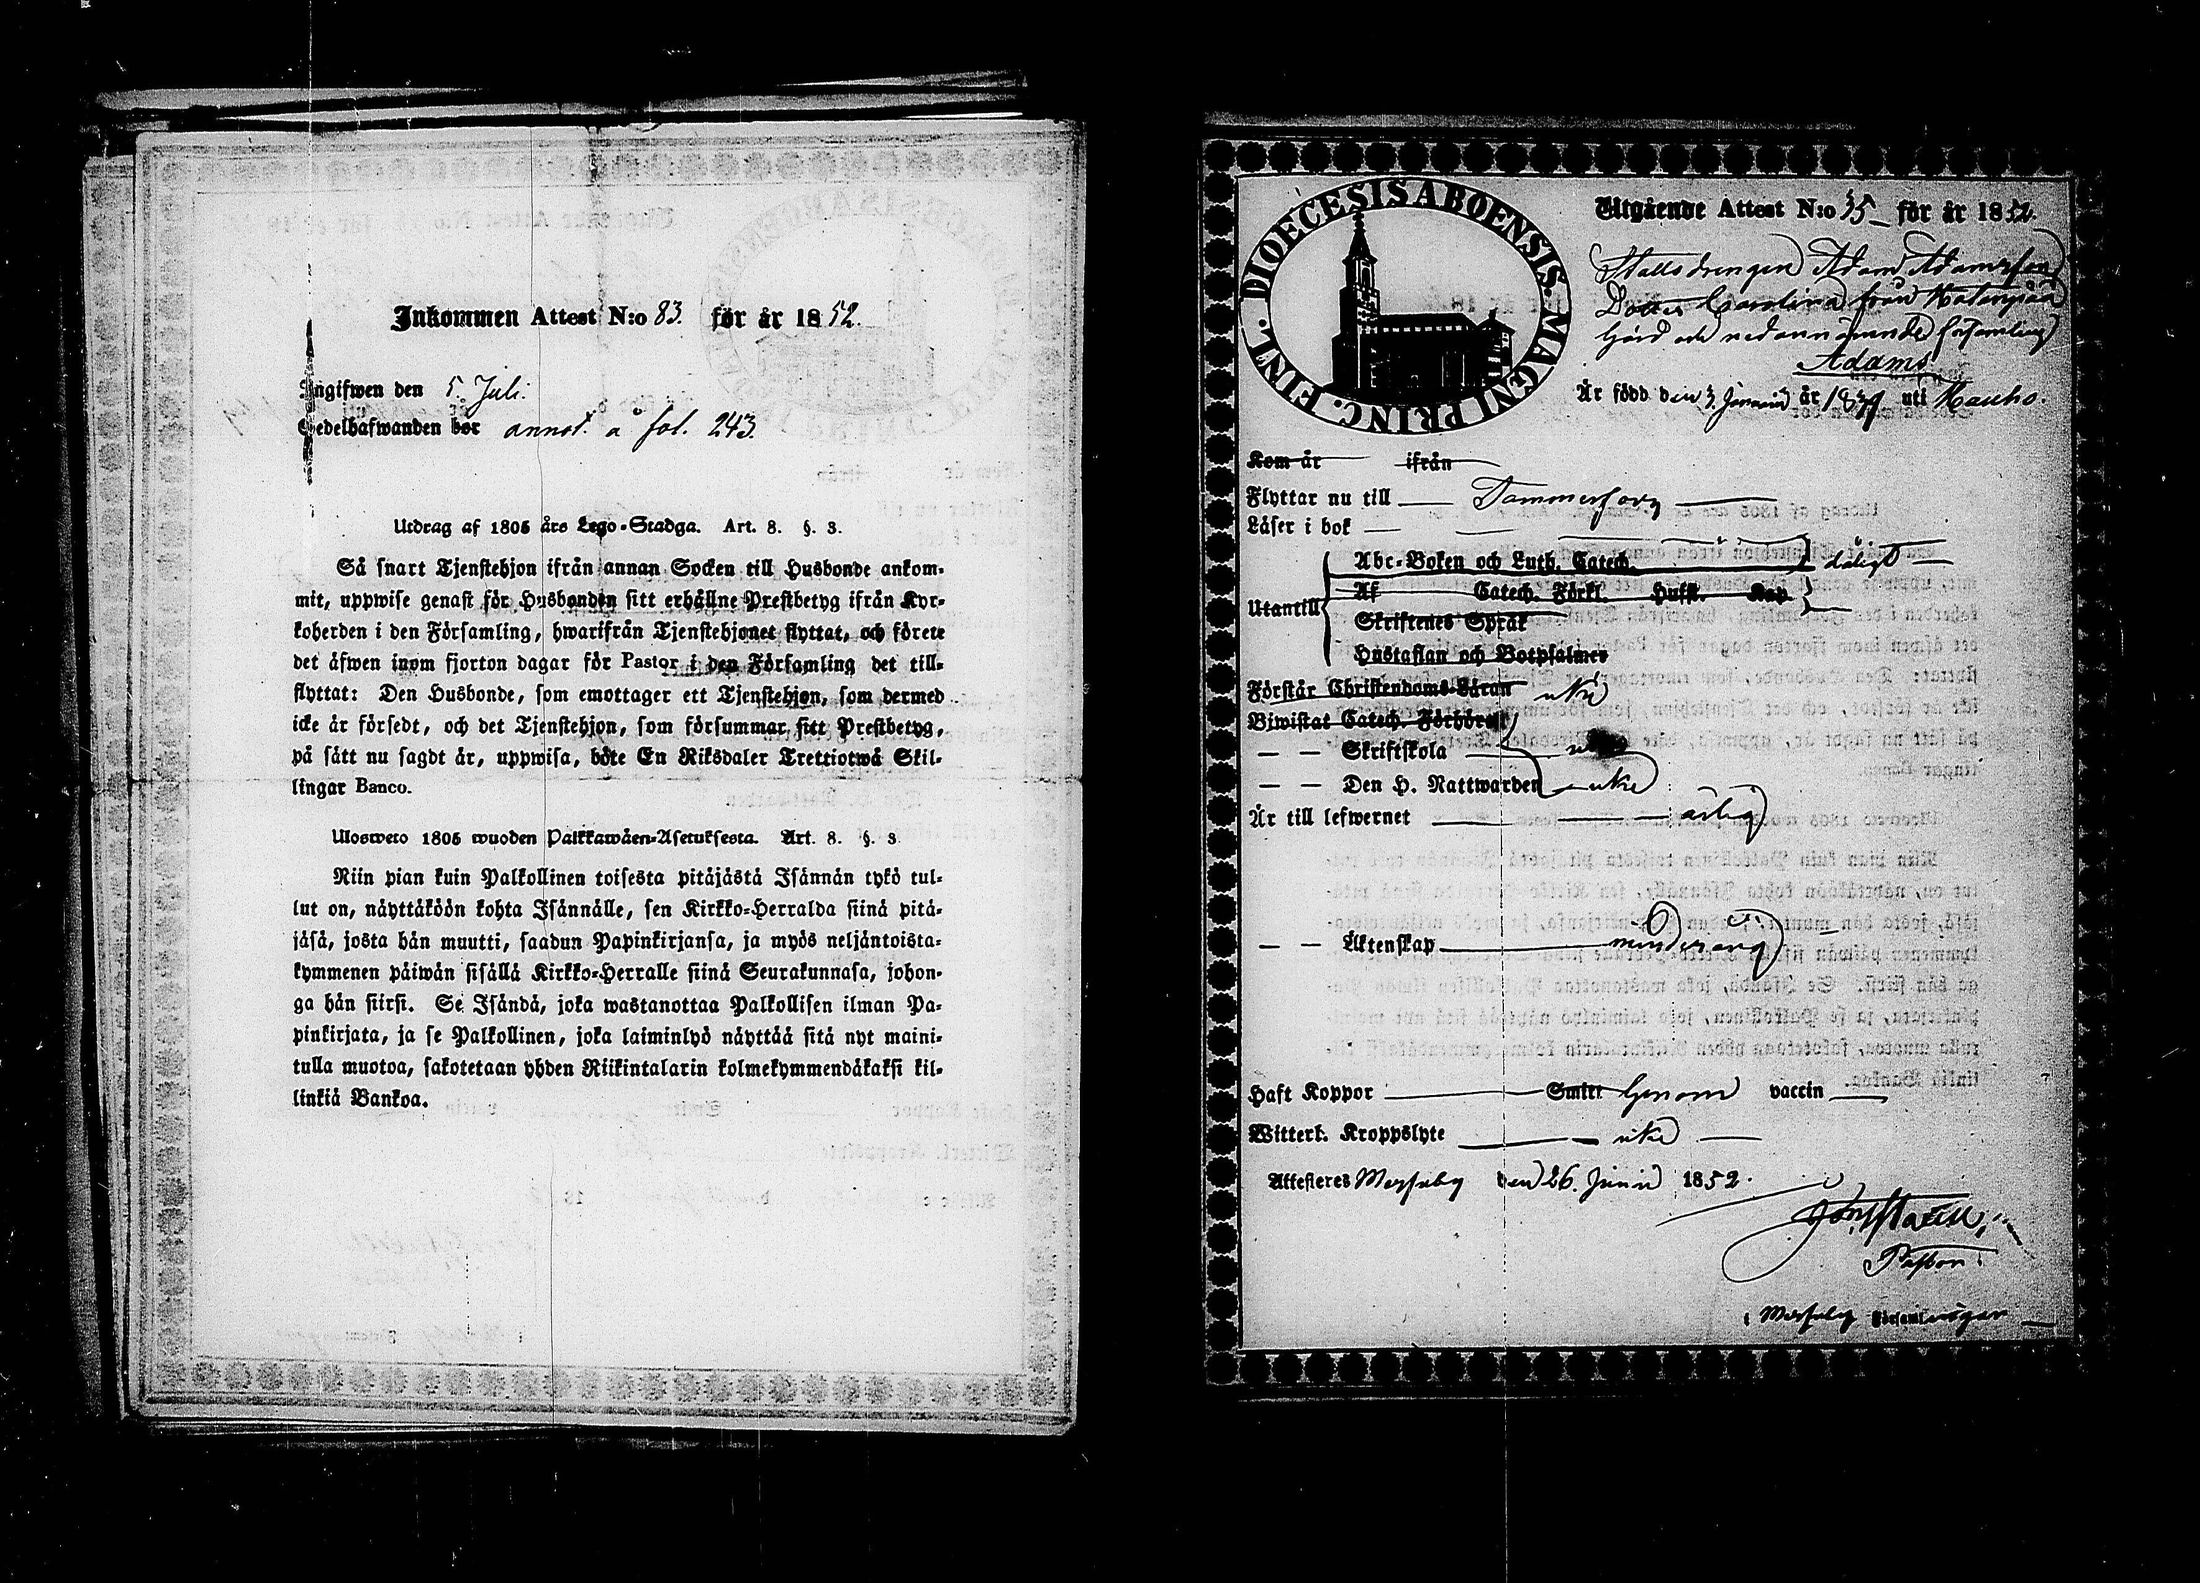 Inkommen Attest N:o 83. för år 1852.
Ingifwen den 5. Juli.
Sedelhafwanden bor annot. å fol. 243.
Utdrag af 1805 års Lego-Stadga. Art. 8. §. 3.
Så snart Tjenstehjon ifrån annan Socken till Husbonde ankom-
mit, uppwise genast för Husbonden sitt erhållne Prestbetyg ifrån Kyr-
koherden i den Församling, hwarifrån Tjenstehjonet flyttat, och förete
det äfwen inom fjorton dagar för Pastor i den Församling det till-
flyttat: Den Husbonde, som emottager ett Tjenstehjon, som dermed
icke är försedt, och det Tjenstehjon, som försummar sitt Prestbetyg,
på sätt nu sagdt är, uppwisa, böte En Riksdaler Trettiotwå Skil-
lingar Banco.
Ulosweto 1805 wuoden Palkkawäen-Asetuksesta. Art. 8. §. 3.
Niin pian kuin Palkollinen toisesta pitäjästä Isännän tykö tul-
lut on, näyttäköön kohta Isännälle, sen Kirkko-Herralda siinä pitä-
jäsä, josta hän muutti, saadun Papinkirjansa, ja myös neljäntoista-
kymmenen päiwän sisällä Kirkko-Herralle siinä Seurakunnasa, johon-
ga hän siirsi. Se Isändä, joka wastanottaa Palkollisen ilman Pa-
pinkirjata, ja se Palkollinen, joka laiminlyö näyttää sitä nyt maini-
tulla muotoa, sakotetaan yhden Riikintalarin kolmekymmendäkaksi kil-
linkiä Bankoa.
DIOECESIS ABOENSIS. MAGNI PRINC. FINL.
Utgående Attest N:o 35 för år 1852.
Stallsdrengen Adam Adamsson
Dotter Carolina från
Gård och nedannämnde församling
Adams
Är född den 3 Januarii år 1839 uti Kauho.
Kom år ifrån
Flyttar nu till Tammerfors
Läser i bok
Utantill
Abc-Boken och Luth. Catech. dåligt
Af Catech. Förkl. Huffk. Kap.
Skriftenes Språk
Hustaflan och Botpsalmer
Förstår Christendoms-Läran icke
Biwistat Catech. Förhören
— — Skriftskola
— — Den H. Nattwarden icke
Är till lefwernet ärlig
— — Äktenskap minderårig
Haft Koppor Smitt Genom vaccin
Witterl. Kroppslyte icke
Attesteres Messuby den 26. Junii 1852.
Pastor
i Messuby Församlingar